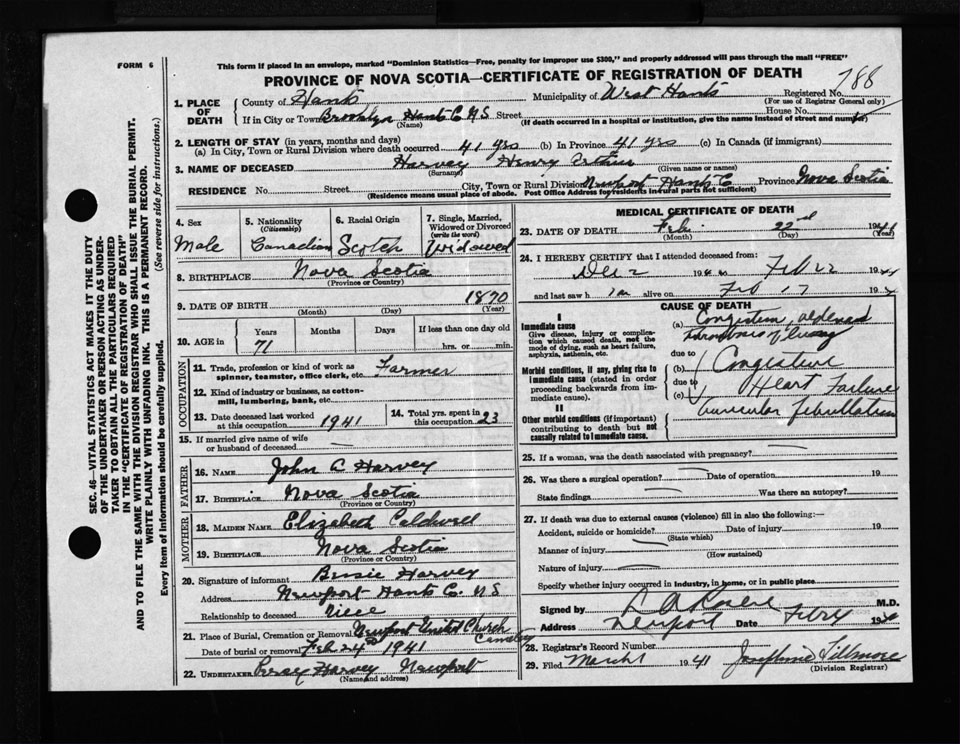 FORM 6
This form if placed in an envelope, marked "Dominion Statistics—Free, penalty for improper use $300," and properly addressed will pass through the mail "FREE"
PROVINCE OF NOVA SCOTIA—CERTIFICATE OF REGISTRATION OF DEATH
788
1. PLACE OF DEATH
County of Hants Municipality of West Hants Registered No.
(For use of Registrar General only)
If in City or Town Brooklyn Hants Co N.S. Street House No.
(Name) (If death occurred in a hospital or institution, give the name instead of street and number)
2. LENGTH OF STAY (in years, months and days)
(a) In City, Town or Rural Division where death occurred 41 yrs (b) In Province 41 yrs (c) In Canada (if immigrant)
3. NAME OF DECEASED Harvey Henry Arthur
(Surname) (Given name or names)
RESIDENCE No. Street City, Town or Rural Division Newport Hants Co Province Nova Scotia
(Residence means usual place of abode. Post Office Address for residents in rural parts not sufficient)
4. Sex
Male
5. Nationality
(Citizenship)
Canadian
6. Racial Origin
Scotch
7. Single, Married, Widowed or Divorced
(write the word)
Widowed
8. BIRTHPLACE Nova Scotia
(Province or Country)
9. DATE OF BIRTH 1870
(Month) (Day) (Year)
10. AGE in
Years Months Days If less than one day old
71 hrs. or min.
OCCUPATION
11. Trade, profession or kind of work as spinner, teamster, office clerk, etc. Farmer
12. Kind of industry or business, as cotton-mill, lumbering, bank, etc.
13. Date deceased last worked at this occupation 1941
14. Total yrs. spent in this occupation 23
15. If married give name of wife or husband of deceased
FATHER
16. NAME John C Harvey
17. BIRTHPLACE Nova Scotia
MOTHER
18. MAIDEN NAME Elizabeth Caldwell
19. BIRTHPLACE Nova Scotia
(Province or Country)
20. Signature of informant Bessie Harvey
Address Newport Hants Co. N.S.
Relationship to deceased Niece
21. Place of Burial, Cremation or Removal Newport United Church Cemetery
Date of burial or removal Feb 24 1941
22. UNDERTAKER Percy Harvey Newport
(Name and address)
MEDICAL CERTIFICATE OF DEATH
23. DATE OF DEATH Feb. 22nd 194
(Month) (Day) (Year)
24. I HEREBY CERTIFY that I attended deceased from:
Dec 2 19 to Feb 22 19
and last saw h im alive on Feb 17 19
CAUSE OF DEATH
I
Immediate cause
Give disease, injury or complication which caused death, not the mode of dying, such as heart failure, asphyxia, asthenia, etc.
(a) Congestion,
due to
Morbid conditions, if any, giving rise to immediate cause (stated in order proceeding backwards from immediate).
(b) Congestive
due to
(c) Heart Failure
II
Other morbid conditions (if important) contributing to death but not causally related to immediate cause.
Auricular Fibrillation
25. If a woman, was the death associated with pregnancy?
26. Was there a surgical operation? Date of operation 19
State findings Was there an autopsy?
27. If death was due to external causes (violence) fill in also the following:
Accident, suicide or homicide? Date of injury 19
(State which)
Manner of injury
(How sustained)
Nature of injury
Specify whether injury occurred in industry, in home, or in public place
Signed by M.D.
Address Newport Date 19
28. Registrar's Record Number
29. Filed March 1 1941 Josephine Fillmore
(Division Registrar)
SEC. 46—VITAL STATISTICS ACT MAKES IT THE DUTY
OF THE UNDERTAKER OR PERSON ACTING AS UNDER-
TAKER TO OBTAIN ALL THE PARTICULARS REQUIRED
IN THE "CERTIFICATE OF REGISTRATION OF DEATH"
AND TO FILE THE SAME WITH THE DIVISION REGISTRAR WHO SHALL ISSUE THE BURIAL PERMIT.
WRITE PLAINLY WITH UNFADING INK. THIS IS A PERMANENT RECORD.
Every item of information should be carefully supplied. (See reverse side for instructions.)